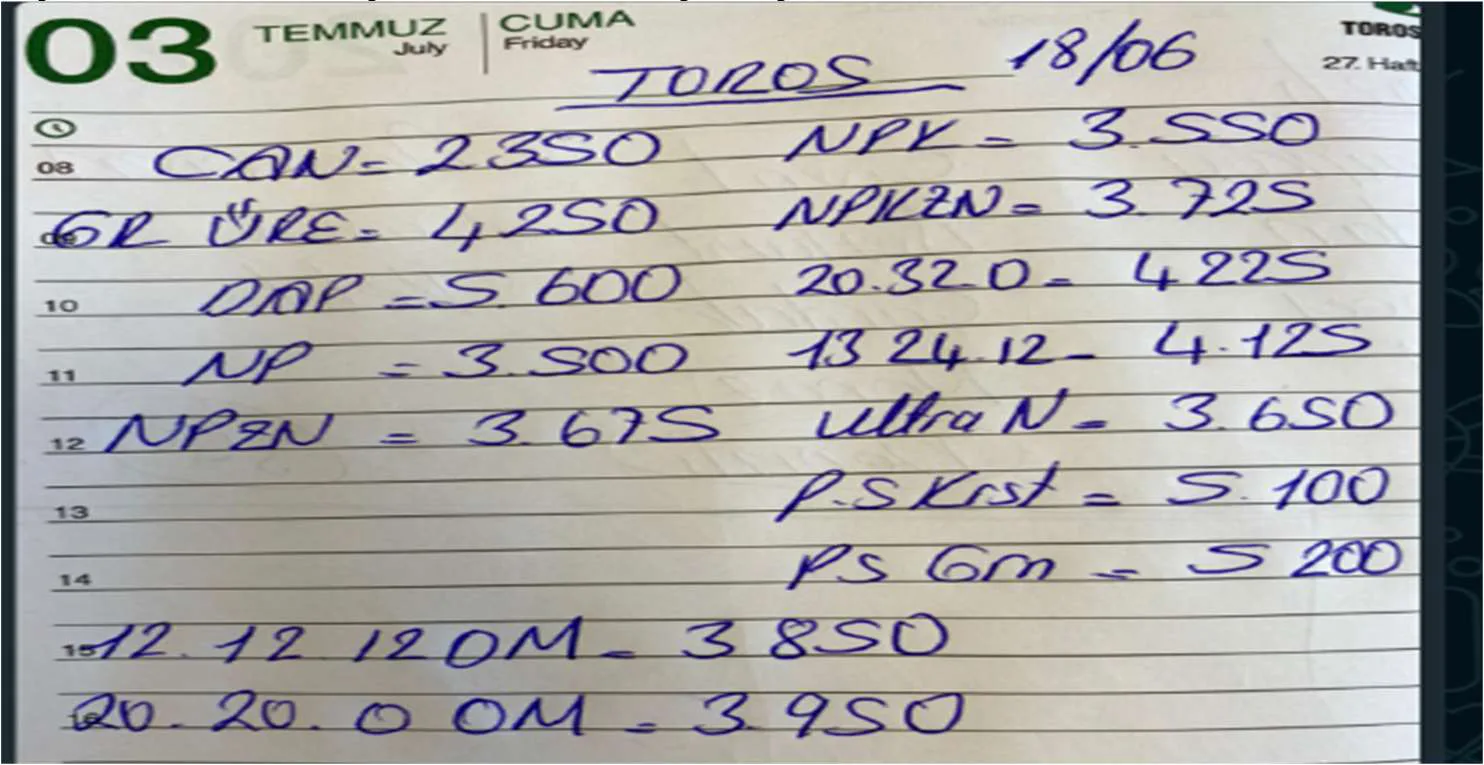 03 TEMMUZ CUMA TOROS
July Friday 27. Haft
TOROS 18/06
08 CAN = 2350 NPK = 3.550
GR ÜRE = 4250 NPKZN = 3.725
10 DAP = 5.600 20.32.0 = 4225
11 NP = 3.500 13 24.12 = 4.125
12 NPZN = 3.675 ultra N = 3.650
13 P.S Krst = 5.100
14 PS Gm = 5 200
15 12.12 12 OM = 3850
20.20.0 OM = 3.950